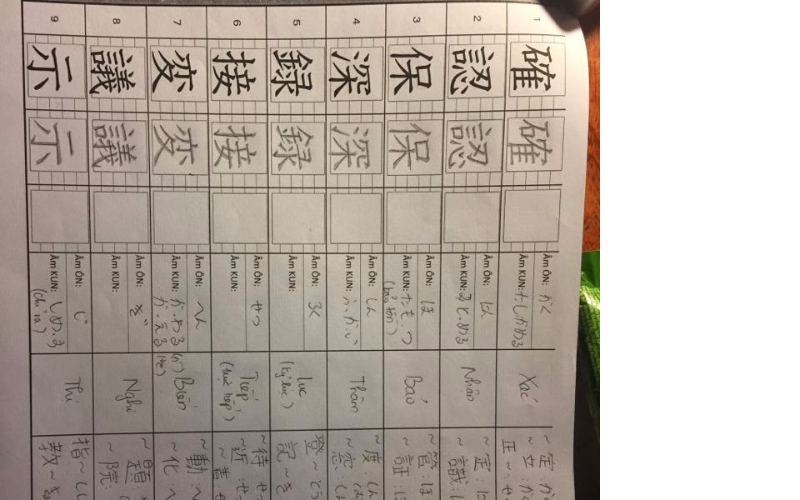 1
確
確
ÂM ÔN: かく
ÂM KUN: たしかめる
Xác
~定
~立
正~
2
認
認
ÂM ÔN:
ÂM KUN: みと.める
Nhân
~定
~識
3
保
保
ÂM ÔN: ほ
ÂM KUN: たも.つ
(bảo tồn)
Bảo
~管: ほ
~証
4
深
深
ÂM ÔN: しん
ÂM KUN: ふ.かい
Thâm
~度
5
録
録
ÂM ÔN: ろく
ÂM KUN:
Lục
(ký lục)
登~
記~
6
接
接
ÂM ÔN: せつ
ÂM KUN:
Tiếp
~待
~近
7
変
変
ÂM ÔN: へん
ÂM KUN: か.わる
か.える
Biến
~動
~化
8
議
議
ÂM ÔN: ぎ
ÂM KUN:
Nghị
~題
~院
9
示
示
ÂM ÔN: じ
ÂM KUN: しめ.す
(chỉ ra)
Thị
指~
教~